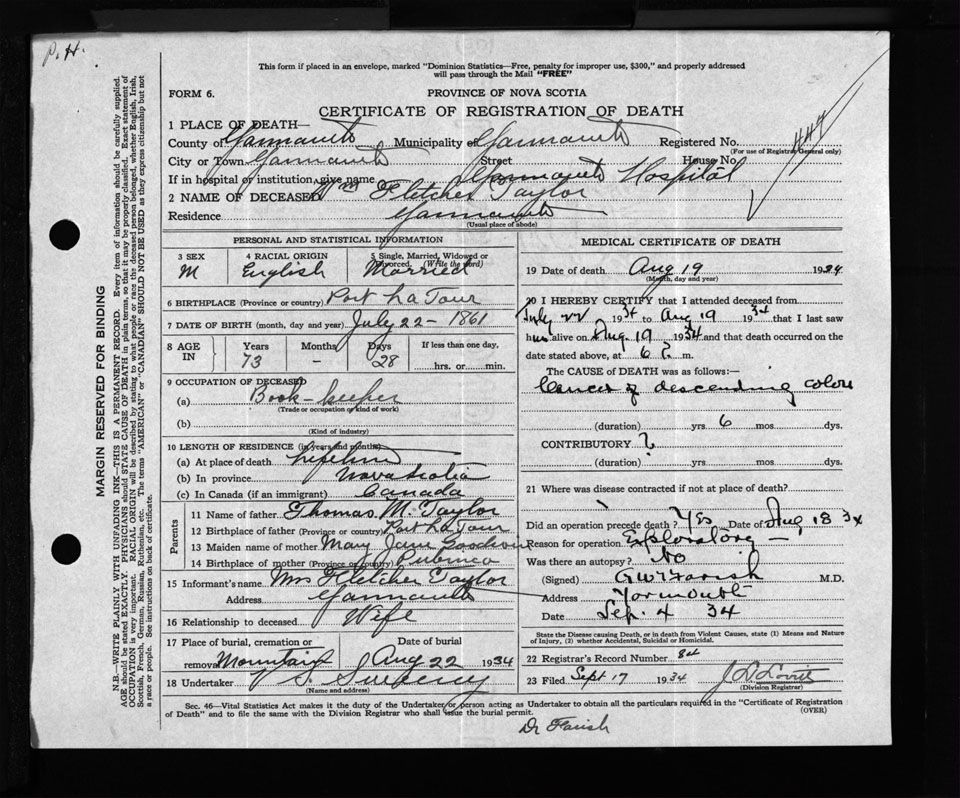 P. H.
This form if placed in an envelope, marked "Dominion Statistics—Free, penalty for improper use, $300," and properly addressed
will pass through the Mail "FREE"
FORM 6.
PROVINCE OF NOVA SCOTIA
CERTIFICATE OF REGISTRATION OF DEATH
447
1 PLACE OF DEATH—
County of Yarmouth Municipality of Yarmouth Registered No.
(For use of Registrar General only)
City or Town Yarmouth Street House No.
If in hospital or institution, give name Yarmouth Hospital
2 NAME OF DECEASED Wm Fletcher Taylor
Residence Yarmouth
(Usual place of abode)
PERSONAL AND STATISTICAL INFORMATION
3 SEX 4 RACIAL ORIGIN 5 Single, Married, Widowed or
Divorced. (Write the word)
M English Married
6 BIRTHPLACE (Province or country) Port La Tour
7 DATE OF BIRTH (month, day and year) July 22 - 1861
8 AGE IN Years Months Days If less than one day,
73 - 28 hrs. or min.
9 OCCUPATION OF DECEASED
(a) Book-keeper
(Trade or occupation or kind of work)
(b)
(Kind of industry)
10 LENGTH OF RESIDENCE (in years and months)
(a) At place of death Lifetime
(b) In province Nova Scotia
(c) In Canada (if an immigrant) Canada
Parents
11 Name of father Thomas M. Taylor
12 Birthplace of father (Province or country) Port La Tour
13 Maiden name of mother Mary Jane Goodwin
14 Birthplace of mother (Province or country) Pubnico
15 Informant's name Mrs Fletcher Taylor
Address Yarmouth
16 Relationship to deceased Wife
17 Place of burial, cremation or Date of burial
removal Mountain Aug 22 1934
18 Undertaker V S Sweeney
(Name and address)
MEDICAL CERTIFICATE OF DEATH
19 Date of death Aug 19 1934
(Month, day and year)
20 I HEREBY CERTIFY that I attended deceased from
July 22 1934 to Aug 19 1934 that I last saw
him alive on Aug 19 1934 and that death occurred on the
date stated above, at 6 P. m.
The CAUSE OF DEATH was as follows:—
Cancer of descending colon
(duration) yrs 6 mos dys.
CONTRIBUTORY ?
(duration) yrs mos dys.
21 Where was disease contracted if not at place of death?
Did an operation precede death? Yes Date of Aug 18 34
Reason for operation Exploratory -
Was there an autopsy? No
(Signed) G W T Farish M.D.
Address Yarmouth
Date Sep. 4 34
State the Disease causing Death, or in death from Violent Causes, state (1) Means and Nature
of Injury, (2) whether Accidental, Suicidal or Homicidal.
22 Registrar's Record Number 84
23 Filed Sept 17 1934
(Division Registrar)
Sec. 46—Vital Statistics Act makes it the duty of the Undertaker or person acting as Undertaker to obtain all the particulars required in the "Certificate of Registration
of Death" and to file the same with the Division Registrar who shall issue the burial permit.
(OVER)
Dr Farish
MARGIN RESERVED FOR BINDING
N.B.—WRITE PLAINLY WITH UNFADING INK—THIS IS A PERMANENT RECORD. Every item of information should be carefully supplied.
AGE should be stated EXACTLY. PHYSICIANS should STATE CAUSE OF DEATH in plain terms, so that it may be properly classified. Exact statement of
OCCUPATION is very important. RACIAL ORIGIN will be described by stating to what people or race the deceased person belonged, whether English, Irish,
Scottish, French, German, Russian, Ruthenian, etc. The terms "AMERICAN" or "CANADIAN" SHOULD NOT BE USED as they express citizenship but not
a race or people. See instructions on back of certificate.